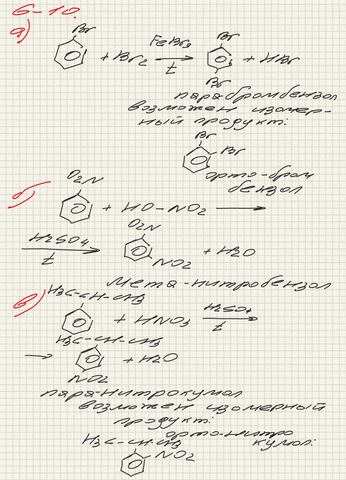 6-10.
а)
Br
+ Br2 FeBr3 t Br Br + HBr
пара бромбензол
возможен изомер-
ный продукт:
Br
Br
орто-бром
бензол
б)
O2N
+ HO-NO2
H2SO4 t O2N NO2 + H2O
мета-нитробензол
в)
H3C-CH-CH3
+ HNO3 H2SO4 t
H3C-CH-CH3
+ H2O
NO2
пара-нитрокумол
возможен изомерный
продукт:
орто-нитро
кумол:
H3C-CH-CH3
NO2